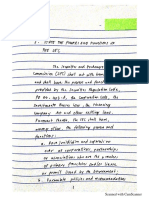 1. STATE THE POWERS AND FUNCTIONS OF
THE SEC
The Securities and Exchange
Commission (SEC) shall act with
and shall have the powers and functions
provided by the Securities Regulation Code,
PD No. 902-A, the Corporation Code, the
Investment Houses Law, the Financing
Company Act and other existing laws.
Pursuant thereto the SEC shall have,
among others, the following powers and
functions:
a. Have jurisdiction and supervision
over all corporations, partnerships,
or associations who are the grantees
of primary franchises and/or license
or permit issued by the Government;
b. Formulate policies and recommendations
Scanned with CamScanner